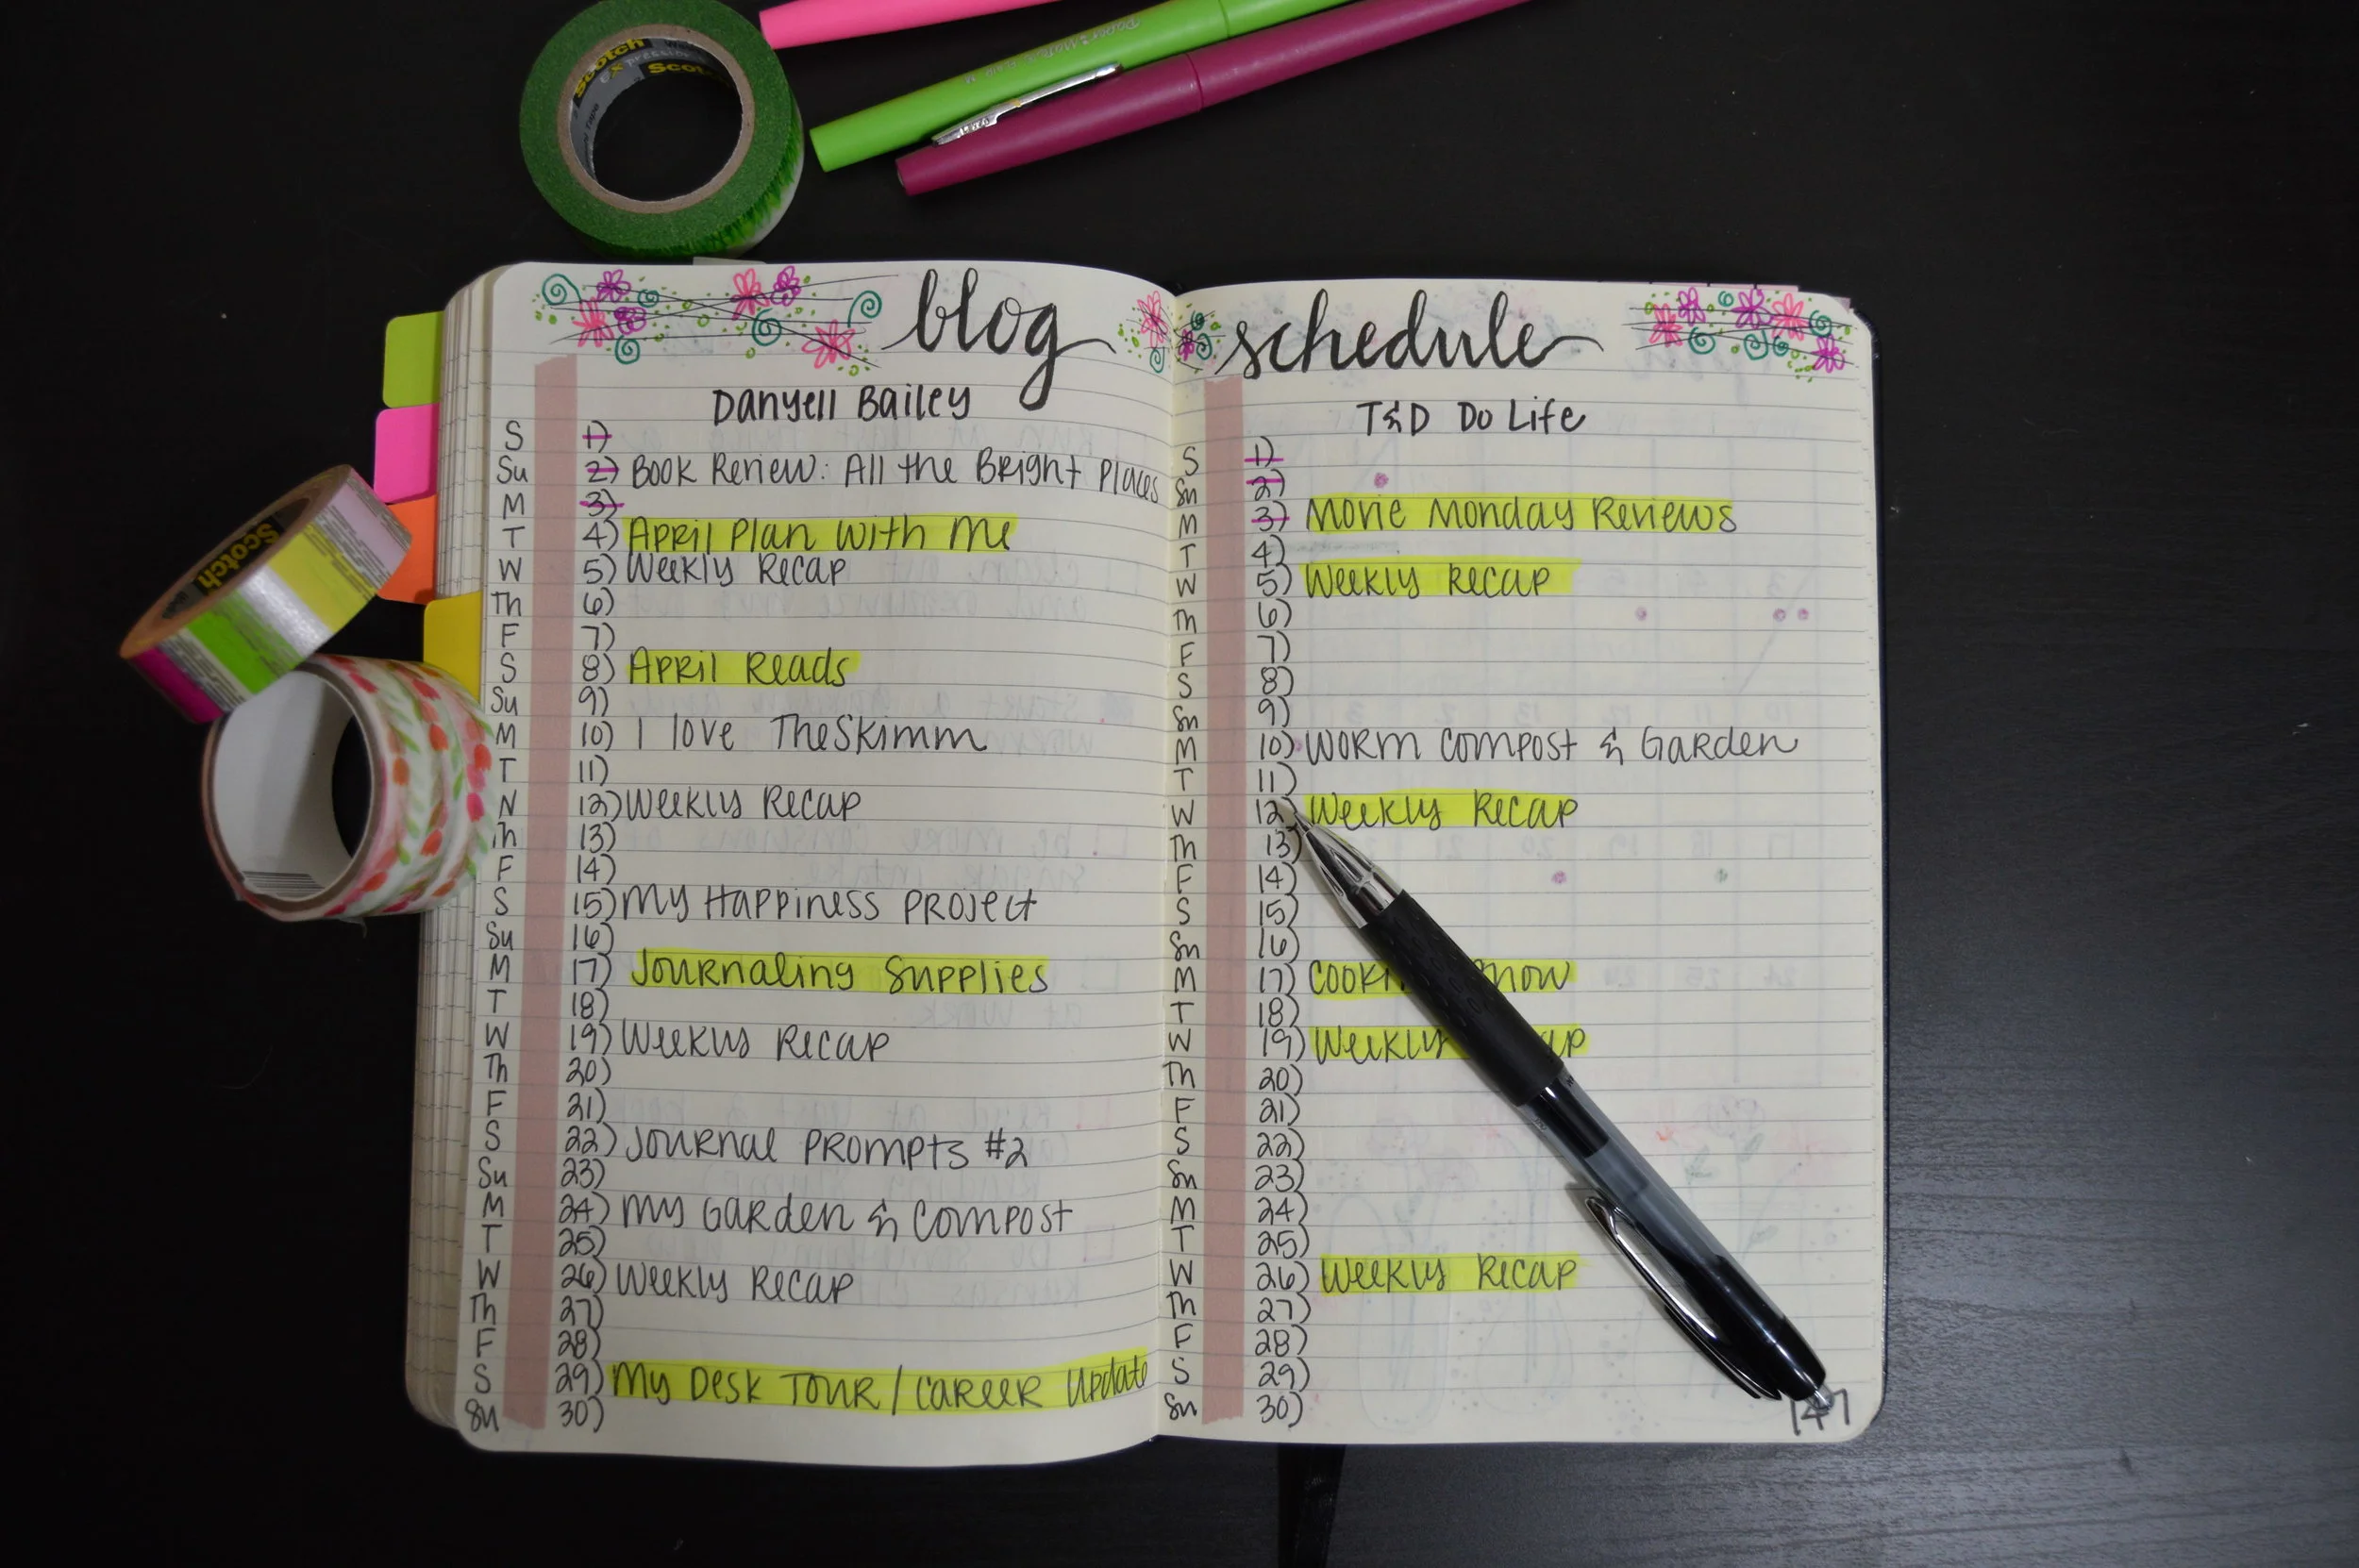 Scotch
Expressions
Scotch
Paper Mate
Scotch
blog schedule
Danyell Bailey
S 1)
Su 2) Book Review: All the Bright Places
M 3)
T 4) April Plan With Me
W 5) Weekly Recap
Th 6)
F 7)
S 8) April Reads
Su 9)
M 10) I love TheSkimm
T 11)
W 12) Weekly Recap
Th 13)
F 14)
S 15) My Happiness Project
Su 16)
M 17) Journaling Supplies
T 18)
W 19) Weekly Recap
Th 20)
F 21)
S 22) Journal Prompts #2
Su 23)
M 24) My Garden & Compost
T 25)
W 26) Weekly Recap
Th 27)
F 28)
S 29) My Desk Tour / Career Update
Su 30)
T&D Do Life
S 1)
Su 2)
M 3) Movie Monday Reviews
T 4)
W 5) Weekly Recap
Th 6)
F 7)
S 8)
Su 9)
M 10) Worm Compost & Garden
T 11)
W 12) Weekly Recap
Th 13)
F 14)
S 15)
Su 16)
M 17)
T 18)
W 19) Weekly
Th 20)
F 21)
S 22)
Su 23)
M 24)
T 25)
W 26) Weekly Recap
Th 27)
F 28)
S 29)
Su 30)
147